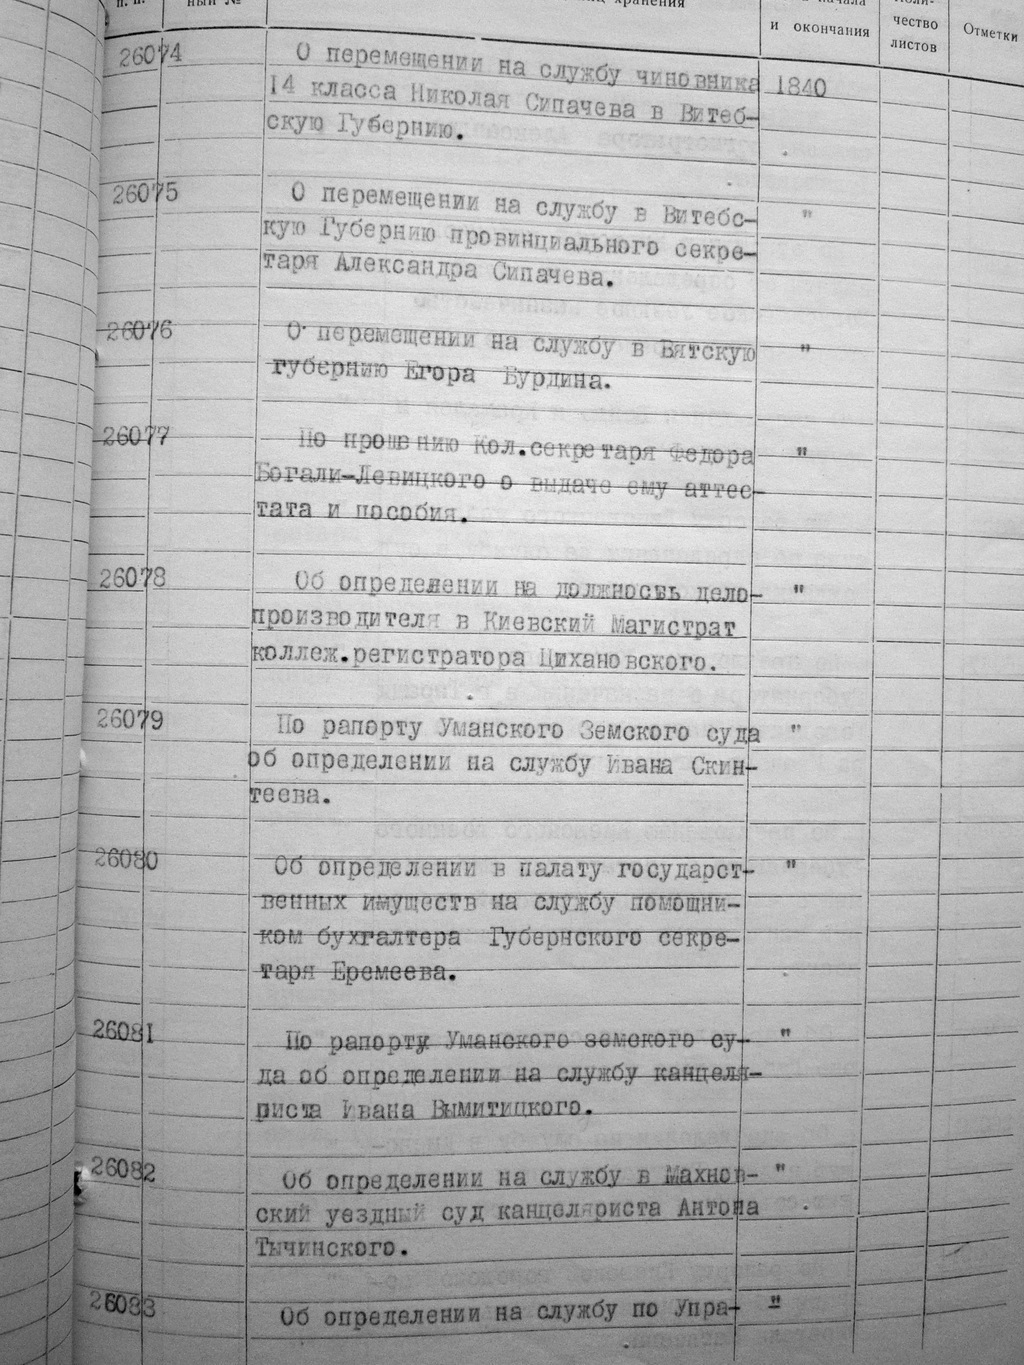 п. п.
ный №
хранения
начала
и окончания
Коли-
чество
листов
Отметки
26074 О перемещении на службу чиновника 1840
14 класса Николая Сипачева в Витеб-
скую Губернию.
26075 О перемещении на службу в Витебс- "
кую Губернию провинциального секре-
таря Александра Сипачева.
26076 О перемещении на службу в Вятскую "
губернию Егора Бурдина.
26077 По прошению Кол.секретаря Федора "
Богали-Левицкого о выдаче ему аттес-
тата и пособия.
26078 Об определении на должность дело- "
производителя в Киевский Магистрат
коллеж.регистратора Цихановского.
26079 По рапорту Уманского Земского суда "
об определении на службу Ивана Скин-
теева.
26080 Об определении в палату государст- "
венных имуществ на службу помощни-
ком бухгалтера Губернского секре-
таря Еремеева.
26081 По рапорту Уманского земского су- "
да об определении на службу канцеля-
риста Ивана Вымитицкого.
26082 Об определении на службу в Махнов- "
ский уездный суд канцеляриста Антона
Тычинского.
26083 Об определении на службу по Упра- "